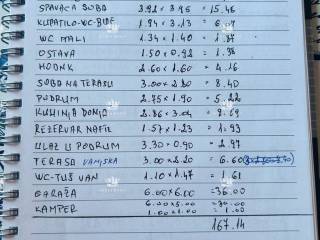 SPAVAĆA SOBA 3.92 x 3.95 = 15.46
KUPATILO-WC-BIDE 1.94 x 3.13 = 6.07
WC MALI 1.34 x 1.40 = 1.87
OSTAVA 1.50 x 0.92 = 1.38
HODNK 2.60 x 1.60 = 4.16
SOBA NA TERASU 3.00 x 2.80 = 8.40
PODRUM 2.75 x 1.90 = 5.22
KUHINJA DONJA 2.86 x 3.04 = 8.69
REZERVAR NAFTE 1.57 x 1.23 = 1.93
ULAZ U PODRUM 3.30 x 0.90 = 2.97
TERASA VANJSKA 3.00 x 2.20 = 6.60
WC-TUŠ VAN 1.10 x 1.47 = 1.61
GARAŽA 6.00 x 6.00 = 36.00
KAMPER 6.00 x 5.00 = 30.00
1.00 x 1.00 = 1.00
167.14